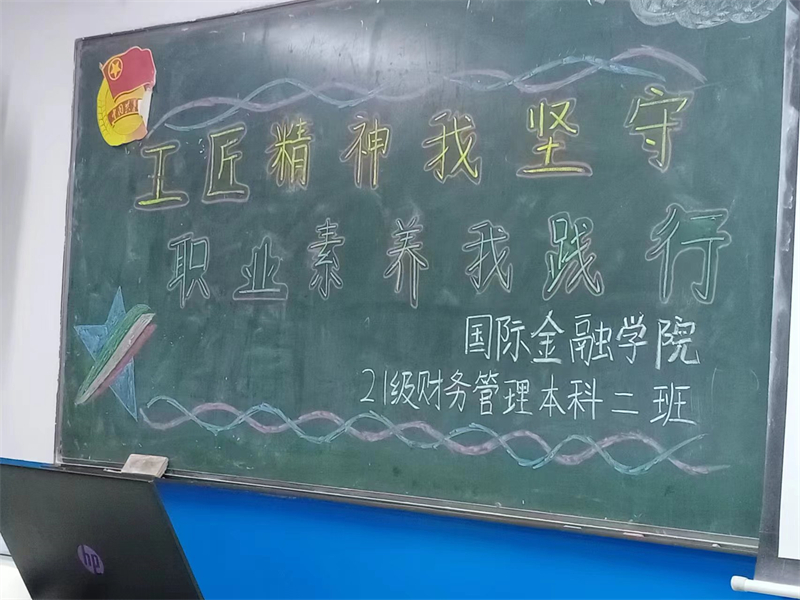 工匠精神我坚守
职业素养我践行
国际金融学院
21级财务管理本科二班
hp